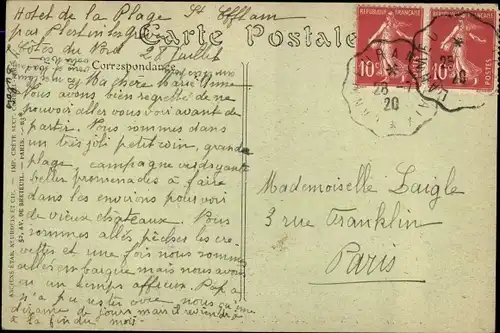 Hotel de la Plage St Efflam
par Plestin les Grèves
Côtes du Nord 28 Juillet
Carte Postale
Correspondance
Ma chère Marie Anne
Nous avons bien regretté de ne
pouvoir aller vous voir avant de
partir. Nous sommes dans
un très joli petit coin, grande
plage, campagne verdoyante
belles promenades à faire
dans les environs pour voir
de vieux châteaux. Nous
sommes allés pêcher les cre-
vettes et une fois nous sommes
allés en barque mais nous avons
eu un temps affreux. Papa
n'a pu rester avec nous qu'une
dizaine de jours mais il reviendra
à la fin du mois.
Mademoiselle Laigle
3 rue Franklin
Paris
RÉPUBLIQUE FRANÇAISE
10
RÉPUBLIQUE FRANÇAISE
10
LANNION
28
20
LANNION
28
20
ANCIENS ÉTAB. NEURDEIN ET CIE
52, AV. DE BRETEUIL. — PARIS.